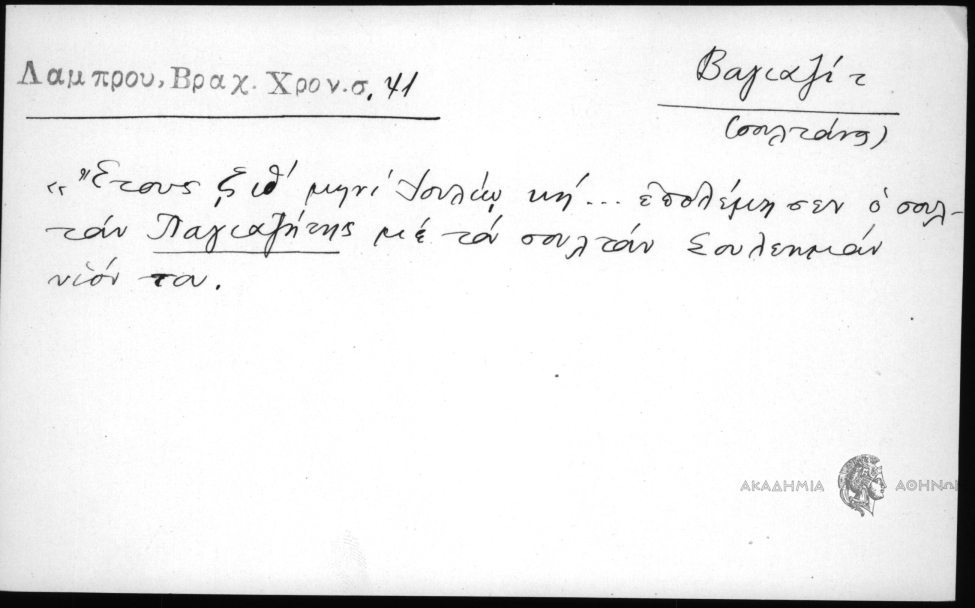 Λαμπρου, Βραχ. Χρον. σ. 41
Βαγιαζίτ
(σουλτάνος)
«Ἔτους ζιθ' μηνί Ἰουλίῳ κή... ἐπολέμησεν ὁ σουλ-
τάν Παγιαζήτης μέ τά σουλτάν Σουλεημάν
υἱόν του.
ΑΚΑΔΗΜΙΑ ΑΘΗΝΩΝ